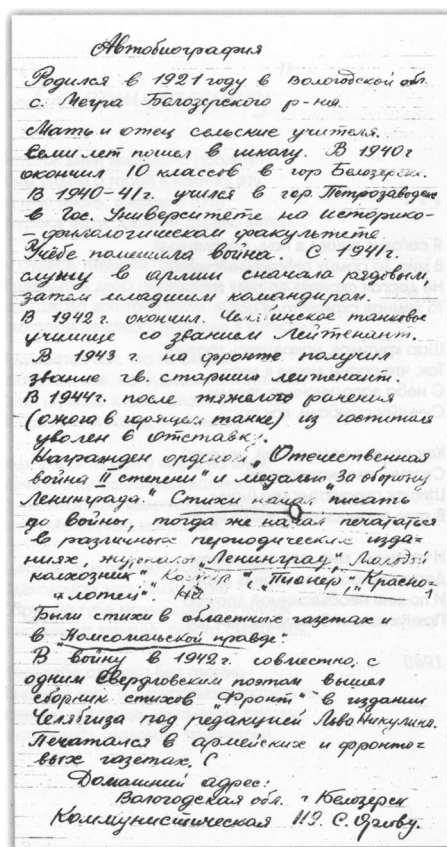 Автобиография
Родился в 1921 году в Вологодской обл.
с. Мегра Белозерского р-на
Мать и отец сельские учителя.
Семи лет пошел в школу. В 1940г
окончил 10 классов в гор Белозерск.
В 1940-41г. учился в гор. Петрозаводске
в Гос. Университете на историко-
-филологическом факультете.
Учёбе помешала война. С 1941г.
служу в армии сначала рядовым,
затем младшим командиром.
В 1942г. окончил Челябинское танковое
училище со званием Лейтенант.
В 1943 г. на фронте получил
звание гв. старший лейтенант.
В 1944г. после тяжелого ранения
(ожога в горящем танке) из госпиталя
уволен в отставку.
Награжден орденом „Отечественная
война II степени" и медалью „За оборону
Ленинграда." Стихи начал писать
до войны, тогда же начал печататься
в различных периодических изда-
ниях, журналы „Ленинград", Молодой
колхозник" „Костер", „Пионер", Красно-
флотец".
Были стихи в областных газетах и
в „Комсомольской правде".
В войну в 1942г. совместно с
одним Свердловским поэтом вышел
сборник стихов „Фронт" в издании
Челябгиза под редакцией Льва Никулина.
Печатался в армейских и фронто-
вых газетах,
Домашний адрес:
Вологодская обл. г Белозерск
Коммунистическая С. Орлову.